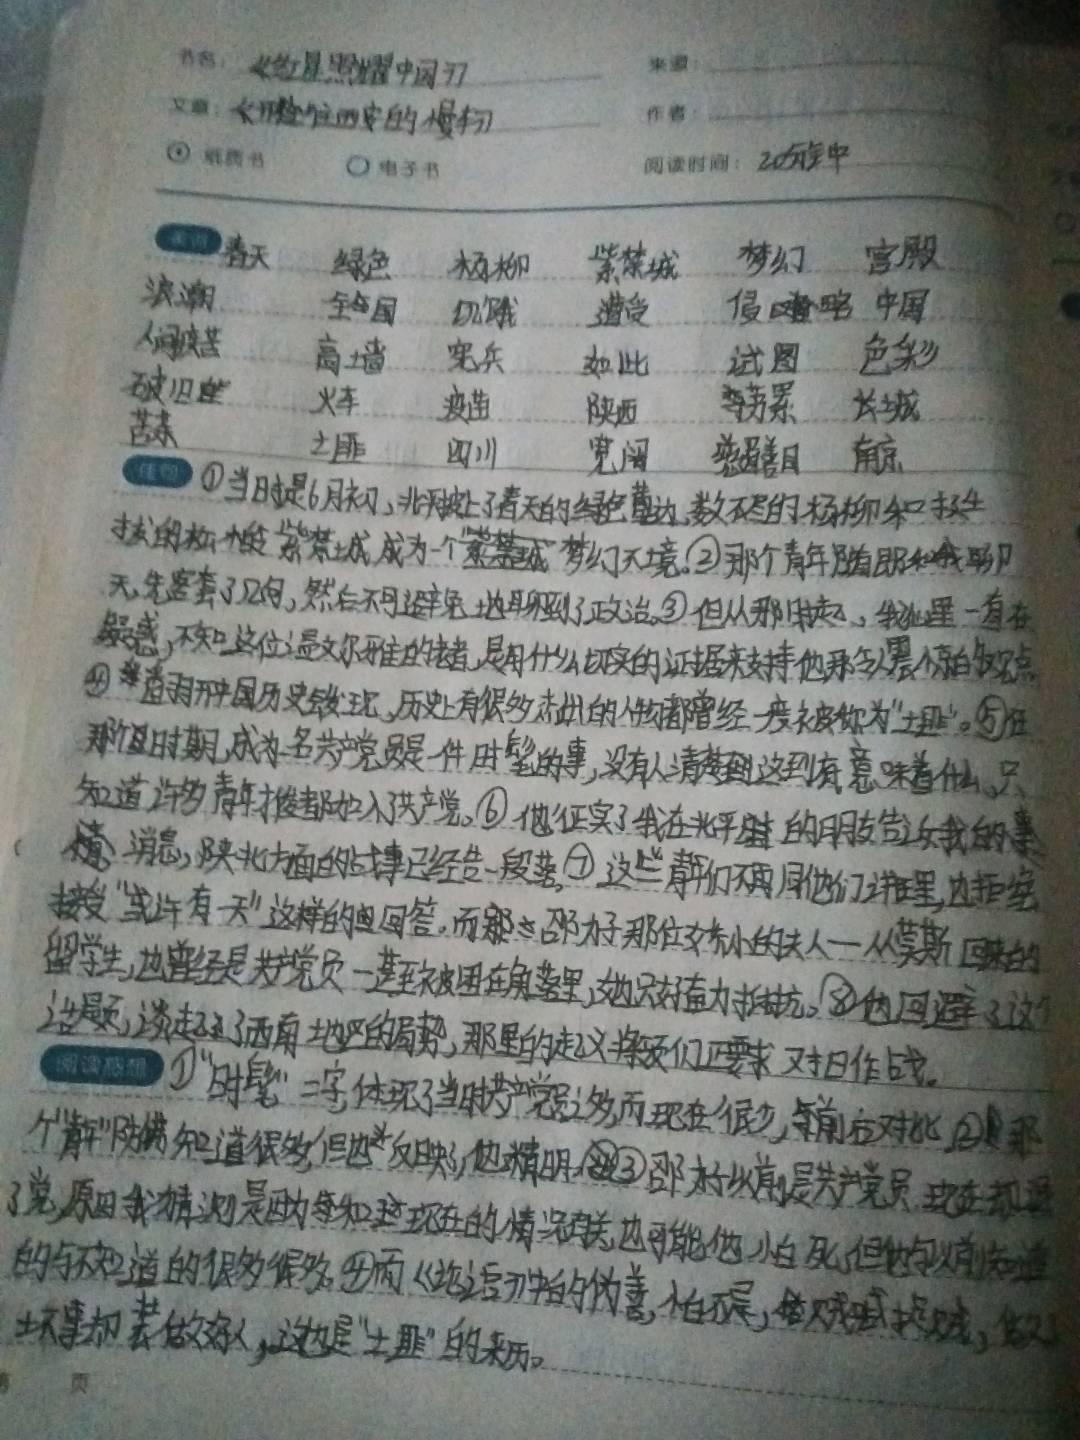 书名： 《红星照耀中国》 来源：
文章：《开往西安的慢车》 作者：
纸质书 电子书 阅读时间： 20分钟
春天 绿色 杨柳 紫禁城 梦幻 宫殿
浪潮 全国 饥饿 遭受 侵略 中国
人间疾苦 高墙 宪兵 如此 试图 色彩
破旧 火车 疫苗 陕西 劳累 长城
苦来 土匪 四川 宽阔 慈眉善目 南京
佳句 ①当时是6月初，北平披上了春天的绿色 数不尽的杨柳和挺
拔的松柏 紫禁城成为一个 梦幻天境。②那个青年随即和我聊
天，先客套了几句，然后不可避免地聊到了政治。③但从那时起，我心里一直在
疑惑，不知这位温文尔雅的老者，是用什么切实的证据来支持他那令人震惊的观点
④ 翻开中国历史会发现，历史上有很多杰出的人物都曾经一度被称为“土匪”。⑤在
那个旧时期，成为一名共产党员是一件时髦的事，没有人清楚到这到底意味着什么，只
知道许多青年才俊都加入了共产党。⑥他证实了我在北平时的朋友告诉我的
消息，陕北方面的战事已经告一段落，⑦这些青年们不再同他们讲理，也拒绝
接受“或许有一天”这样的回答。而邵力子那位娇小的夫人一从莫斯 回来的
留学生，也曾经是共产党员一甚至被困在角落里，她只好奋力抵抗。⑧他回避了这个
话题，谈起了西南地区的局势，那里的起义将领们正要求对日作战。
阅读感想 ①“时髦”二字，体现了当时共产党员之多，而现在很少，与前后对比 ② 那
个“青年”防备知道很多，但也 反映，他精明。③邵力子以前是共产党员 现在却退
了党，原因我猜测是因为 现在的情况有关，也可能他怕死，但他与以前知道
的与不知道的很多很多。④而《论语》中的伪善，
坏事却装做好人，这也是“土匪”的来历。
第 页